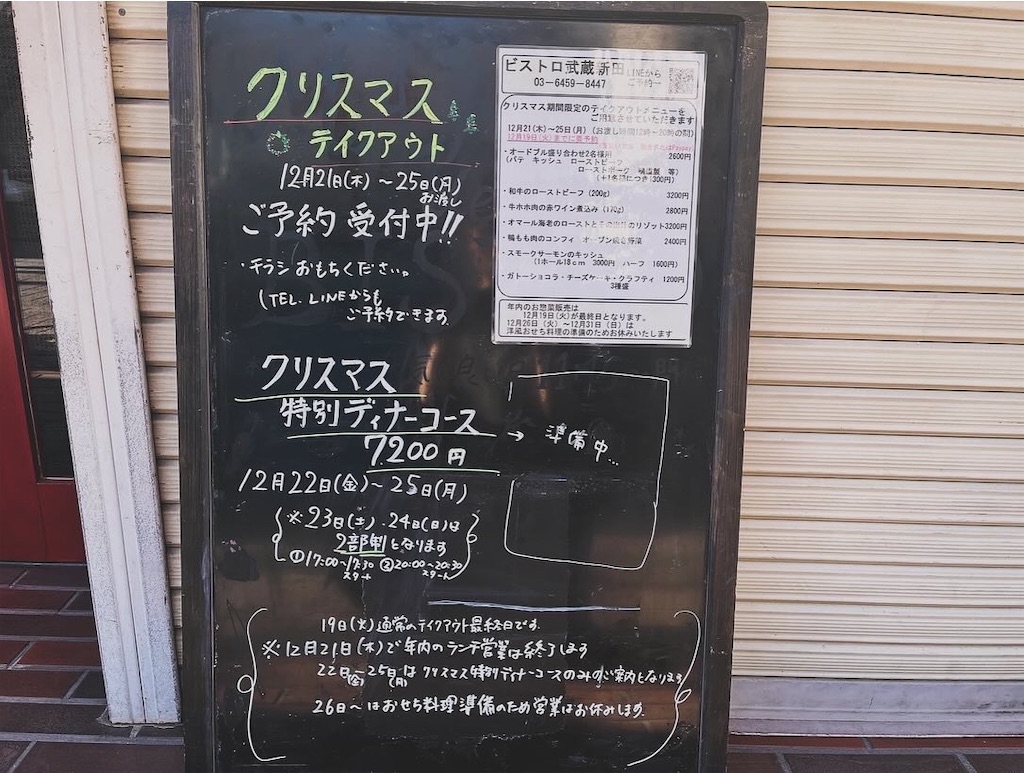 クリスマス
テイクアウト
12月21日(木)～25日(月)
お渡し
ご予約 受付中!!
・チラシ おもちください。
(TEL. LINEからも
ご予約できます。
クリスマス
特別ディナーコース
7200円
→ 準備中...
12月22日(金)～25日(月)
※23日(土)・24日(日)は
2部制となります
①17:00～17:30 ②20:00～20:30
スタート スタート
19日(火)通常のテイクアウト最終日です。
※12月21日(木)で年内のランチ営業は終了します
22日(金)～25日(月)は クリスマス特別ディナーコースのみのご案内となります
26日～はおせち料理準備のため営業はお休みします。
ビストロ武蔵新田
LINEから
ご予約
03-6459-8447
クリスマス期間限定のテイクアウトメニューを
ご用意させていただきます
12月21(木)～25日(月)(お渡し時間12時～20時の間)
12月19日(火)までに要予約
・オードブル盛り合わせ2名様用 2600円
(パテ キッシュ ローストビーフ
ローストポーク 等)
(+1名様につき1300円)
・和牛のローストビーフ (200g) 3200円
・牛ホホ肉の赤ワイン煮込み (170g) 2800円
・オマール海老のローストと のリゾット3200円
・鴨もも肉のコンフィ オーブン焼き野菜 2400円
・スモークサーモンのキッシュ
(1ホール18cm 3000円 ハーフ 1600円)
・ガトーショコラ・チーズケーキ・クラフティ 1200円
3種盛
年内のお惣菜販売は
12月19日(火)が最終日となります。
12月26日(火)～12月31日(日)は
洋風おせち料理の準備のためお休みいたします